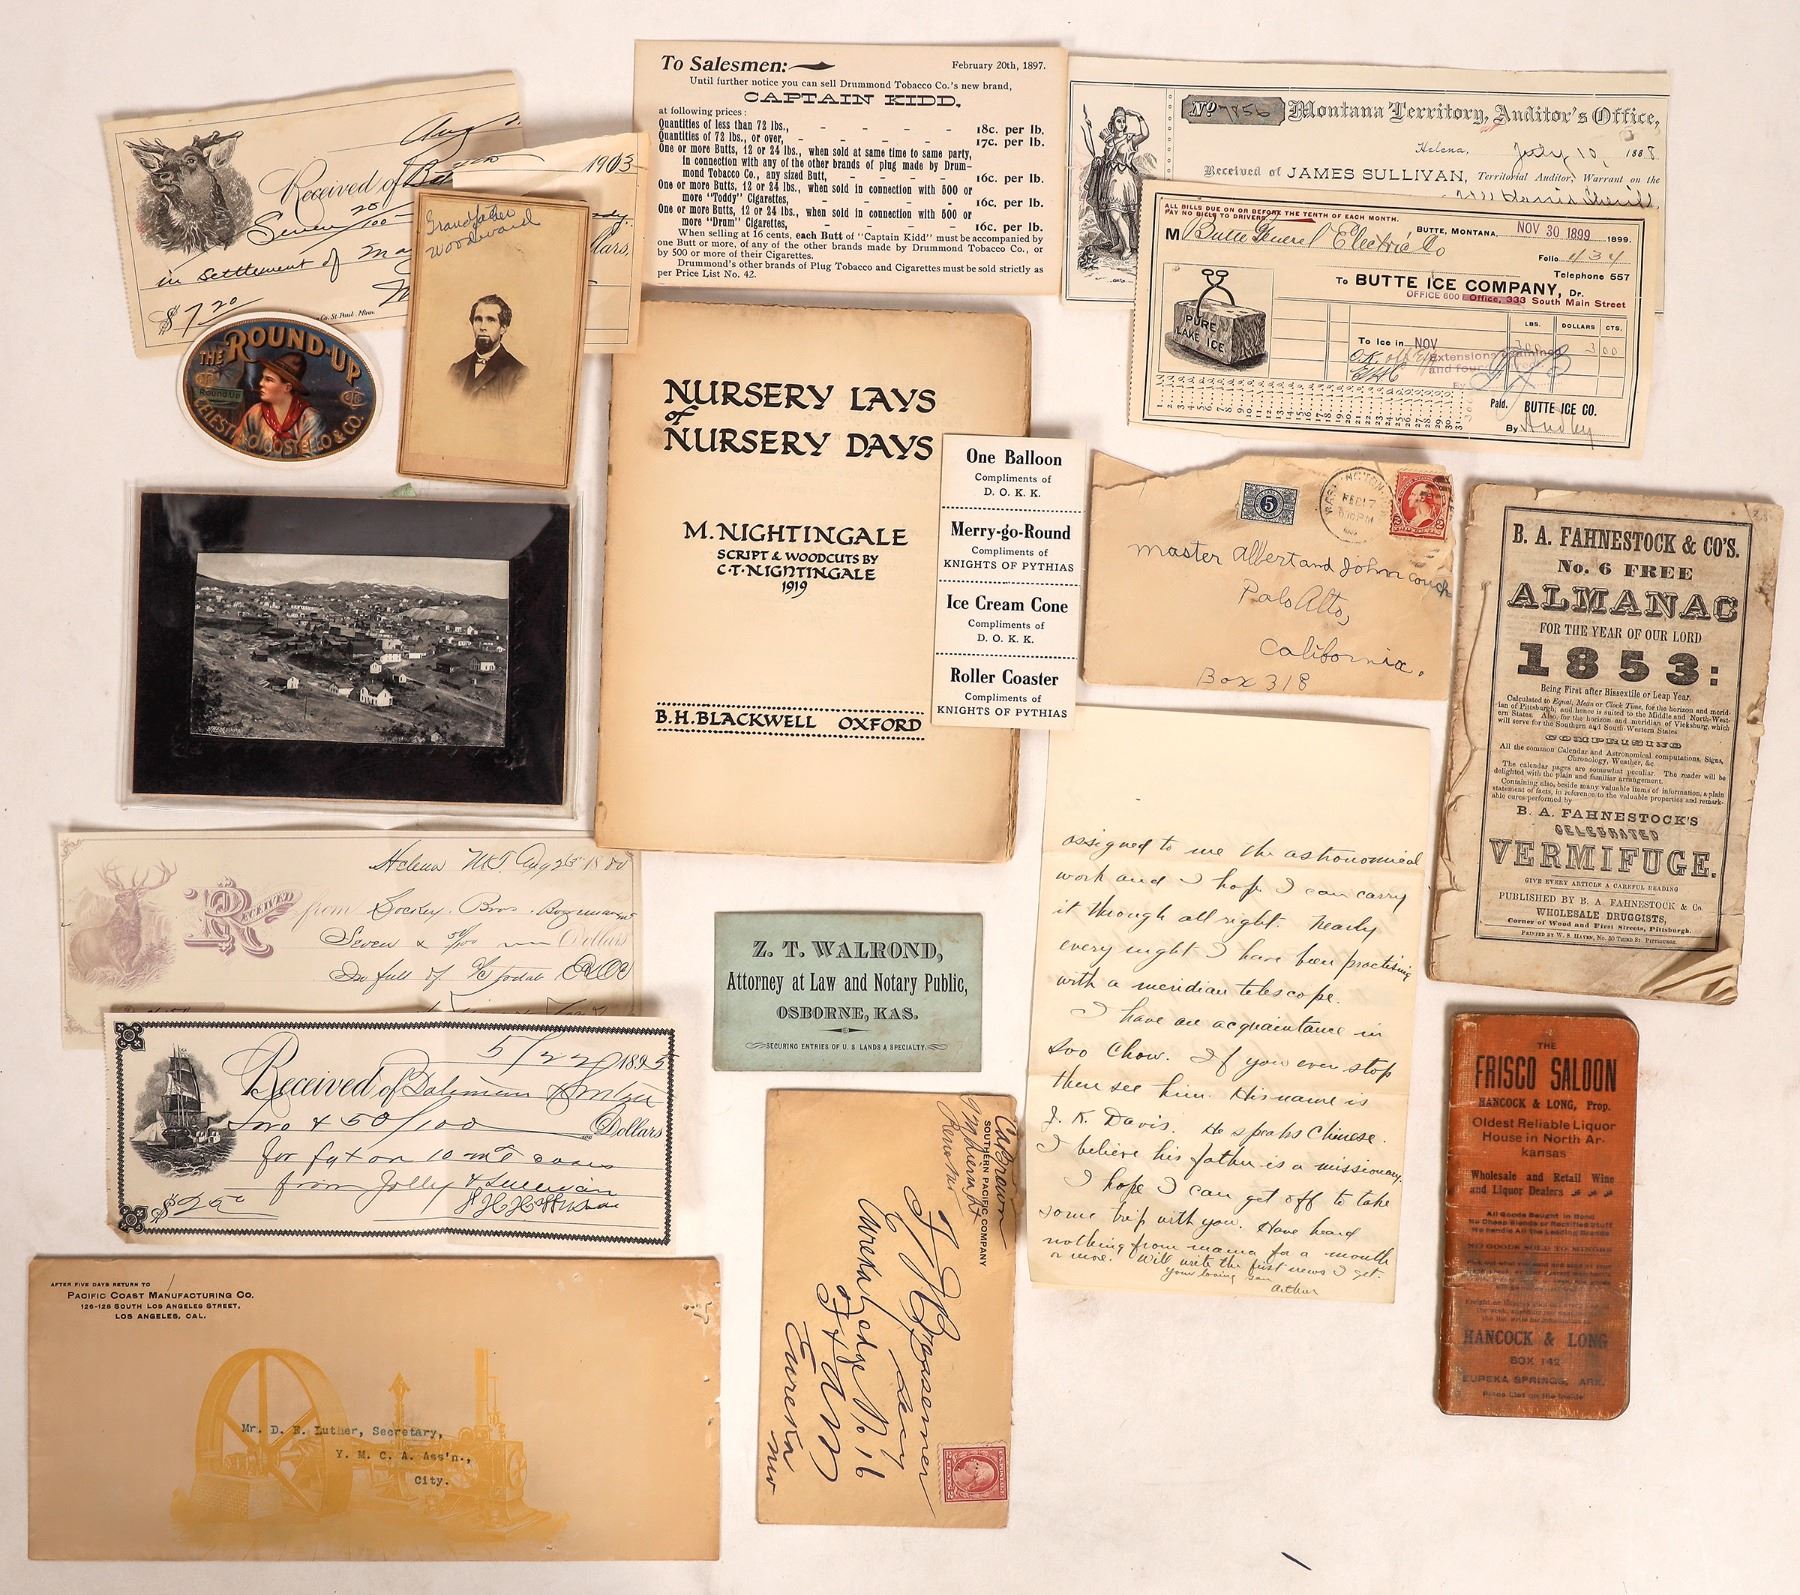 Aug
Received of
Seven 20/100
in settlement of
$7.20
Co. St. Paul, Minn.
1903
Dollars,
Grandfather
Woodward
THE ROUND-UP
Round Up
CELESTINO COSTELLO & CO.
To Salesmen:
February 20th, 1897.
Until further notice you can sell Drummond Tobacco Co.'s new brand,
CAPTAIN KIDD,
at following prices:
Quantities of less than 72 lbs., - - - - 18c. per lb.
Quantities of 72 lbs., or over, - - - - 17c. per lb.
One or more Butts, 12 or 24 lbs., when sold at same time to same party,
in connection with any of the other brands of plug made by Drum-
mond Tobacco Co., any sized Butt, - - - 16c. per lb.
One or more Butts, 12 or 24 lbs., when sold in connection with 500 or
more "Toddy" Cigarettes, - - - - 16c. per lb.
One or more Butts, 12 or 24 lbs., when sold in connection with 500 or
more "Drum" Cigarettes, - - - - 16c. per lb.
When selling at 16 cents, each Butt of "Captain Kidd" must be accompanied by
one Butt or more, of any of the other brands made by Drummond Tobacco Co., or
by 500 or more of their Cigarettes.
Drummond's other brands of Plug Tobacco and Cigarettes must be sold strictly as
per Price List No. 42.
No 7856 Montana Territory, Auditor's Office,
Helena, July 10, 1888.
Received of JAMES SULLIVAN, Territorial Auditor, Warrant on the
ALL BILLS DUE ON OR BEFORE THE TENTH OF EACH MONTH.
PAY NO BILLS TO DRIVERS.
BUTTE, MONTANA, NOV 30 1899 1899.
M Butte General Electric Co
Folio 434
Telephone 557
To BUTTE ICE COMPANY, Dr.
OFFICE 600 Office, 333 South Main Street
PURE
LAKE ICE
LBS. DOLLARS CTS.
To Ice in NOV 300 3 00
Extensions examined
and found
By
Paid. BUTTE ICE CO.
By
1 2 3 4 5 6 7 8 9 10 11 12 13 14 15 16 17 18 19 20 21 22 23 24 25 26 27 28 29 30 31
NURSERY LAYS
of
NURSERY DAYS
M. NIGHTINGALE
SCRIPT & WOODCUTS BY
C.T. NIGHTINGALE
1919
B.H. BLACKWELL OXFORD
One Balloon
Compliments of
D. O. K. K.
Merry-go-Round
Compliments of
KNIGHTS OF PYTHIAS
Ice Cream Cone
Compliments of
D. O. K. K.
Roller Coaster
Compliments of
KNIGHTS OF PYTHIAS
WASHINGTON
FEB 17
5
Master Albert and John Couch
Palo Alto,
California.
Box 318
B. A. FAHNESTOCK & CO'S.
No. 6 FREE
ALMANAC
FOR THE YEAR OF OUR LORD
1853:
Being First after Bissextile or Leap Year.
Calculated to Equal, Mean or Clock Time, for the horizon and merid-
ian of Pittsburgh; and hence is suited to the Middle and North-West-
ern States. Also, for the horizon and meridian of Vicksburg, which
will serve for the Southern and South Western States
COMPRISING
All the common Calendar and Astronomical computations, Signs,
Chronology, Weather, &c.
The calendar pages are somewhat peculiar. The reader will be
delighted with the plain and familiar arrangement.
Containing also, beside many valuable items of information, a plain
statement of facts, in reference to the valuable properties and remark-
able cures performed by
B. A. FAHNESTOCK'S
CELEBRATED
VERMIFUGE.
GIVE EVERY ARTICLE A CAREFUL READING
PUBLISHED BY B. A. FAHNESTOCK & Co.
WHOLESALE DRUGGISTS,
Corner of Wood and First Streets, Pittsburgh.
PRINTED BY W. S. HAVEN, No. 50 THIRD St. PITTSBURGH.
Helena M.T. Aug 23 1880
Received from Bros. Bozeman
Seven & 50/100 Dollars
In full of
assigned to me the astronomical
work and I hope I can carry
it through all right. Nearly
every night I have been practising
with a meridian telescope.
I have an acquaintance in
Soo Chow. If you ever stop
there see him. His name is
J. K. Davis. He speaks Chinese.
I believe his father is a missionary.
I hope I can get off to take
some trip with you. Have heard
nothing from mama for a month
or more. Will write the first news I get.
Your loving son
Arthur
Z. T. WALROND,
Attorney at Law and Notary Public,
OSBORNE, KAS.
SECURING ENTRIES OF U. S. LANDS A SPECIALTY.
5/22 1895
Received of
Two & 50/100 Dollars
for
from Jolly & Sullivan
$2.50
THE
FRISCO SALOON
HANCOCK & LONG, Prop.
Oldest Reliable Liquor
House in North Ar-
kansas
Wholesale and Retail Wine
and Liquor Dealers
All Goods Bought in Bond
No Cheap Blends or Rectified Stuff
We handle All the Leading Brands
NO GOODS SOLD TO MINORS
HANCOCK & LONG
BOX 142
EUREKA SPRINGS, ARK.
Price List on the Inside
AFTER FIVE DAYS RETURN TO
PACIFIC COAST MANUFACTURING CO.
126-128 SOUTH LOS ANGELES STREET,
LOS ANGELES, CAL.
Mr. D. E. Luther, Secretary,
Y. M. C. A. Ass'n.,
City.
SOUTHERN PACIFIC COMPANY
Eureka Lodge No. 16
F & AM
Eureka
Nev